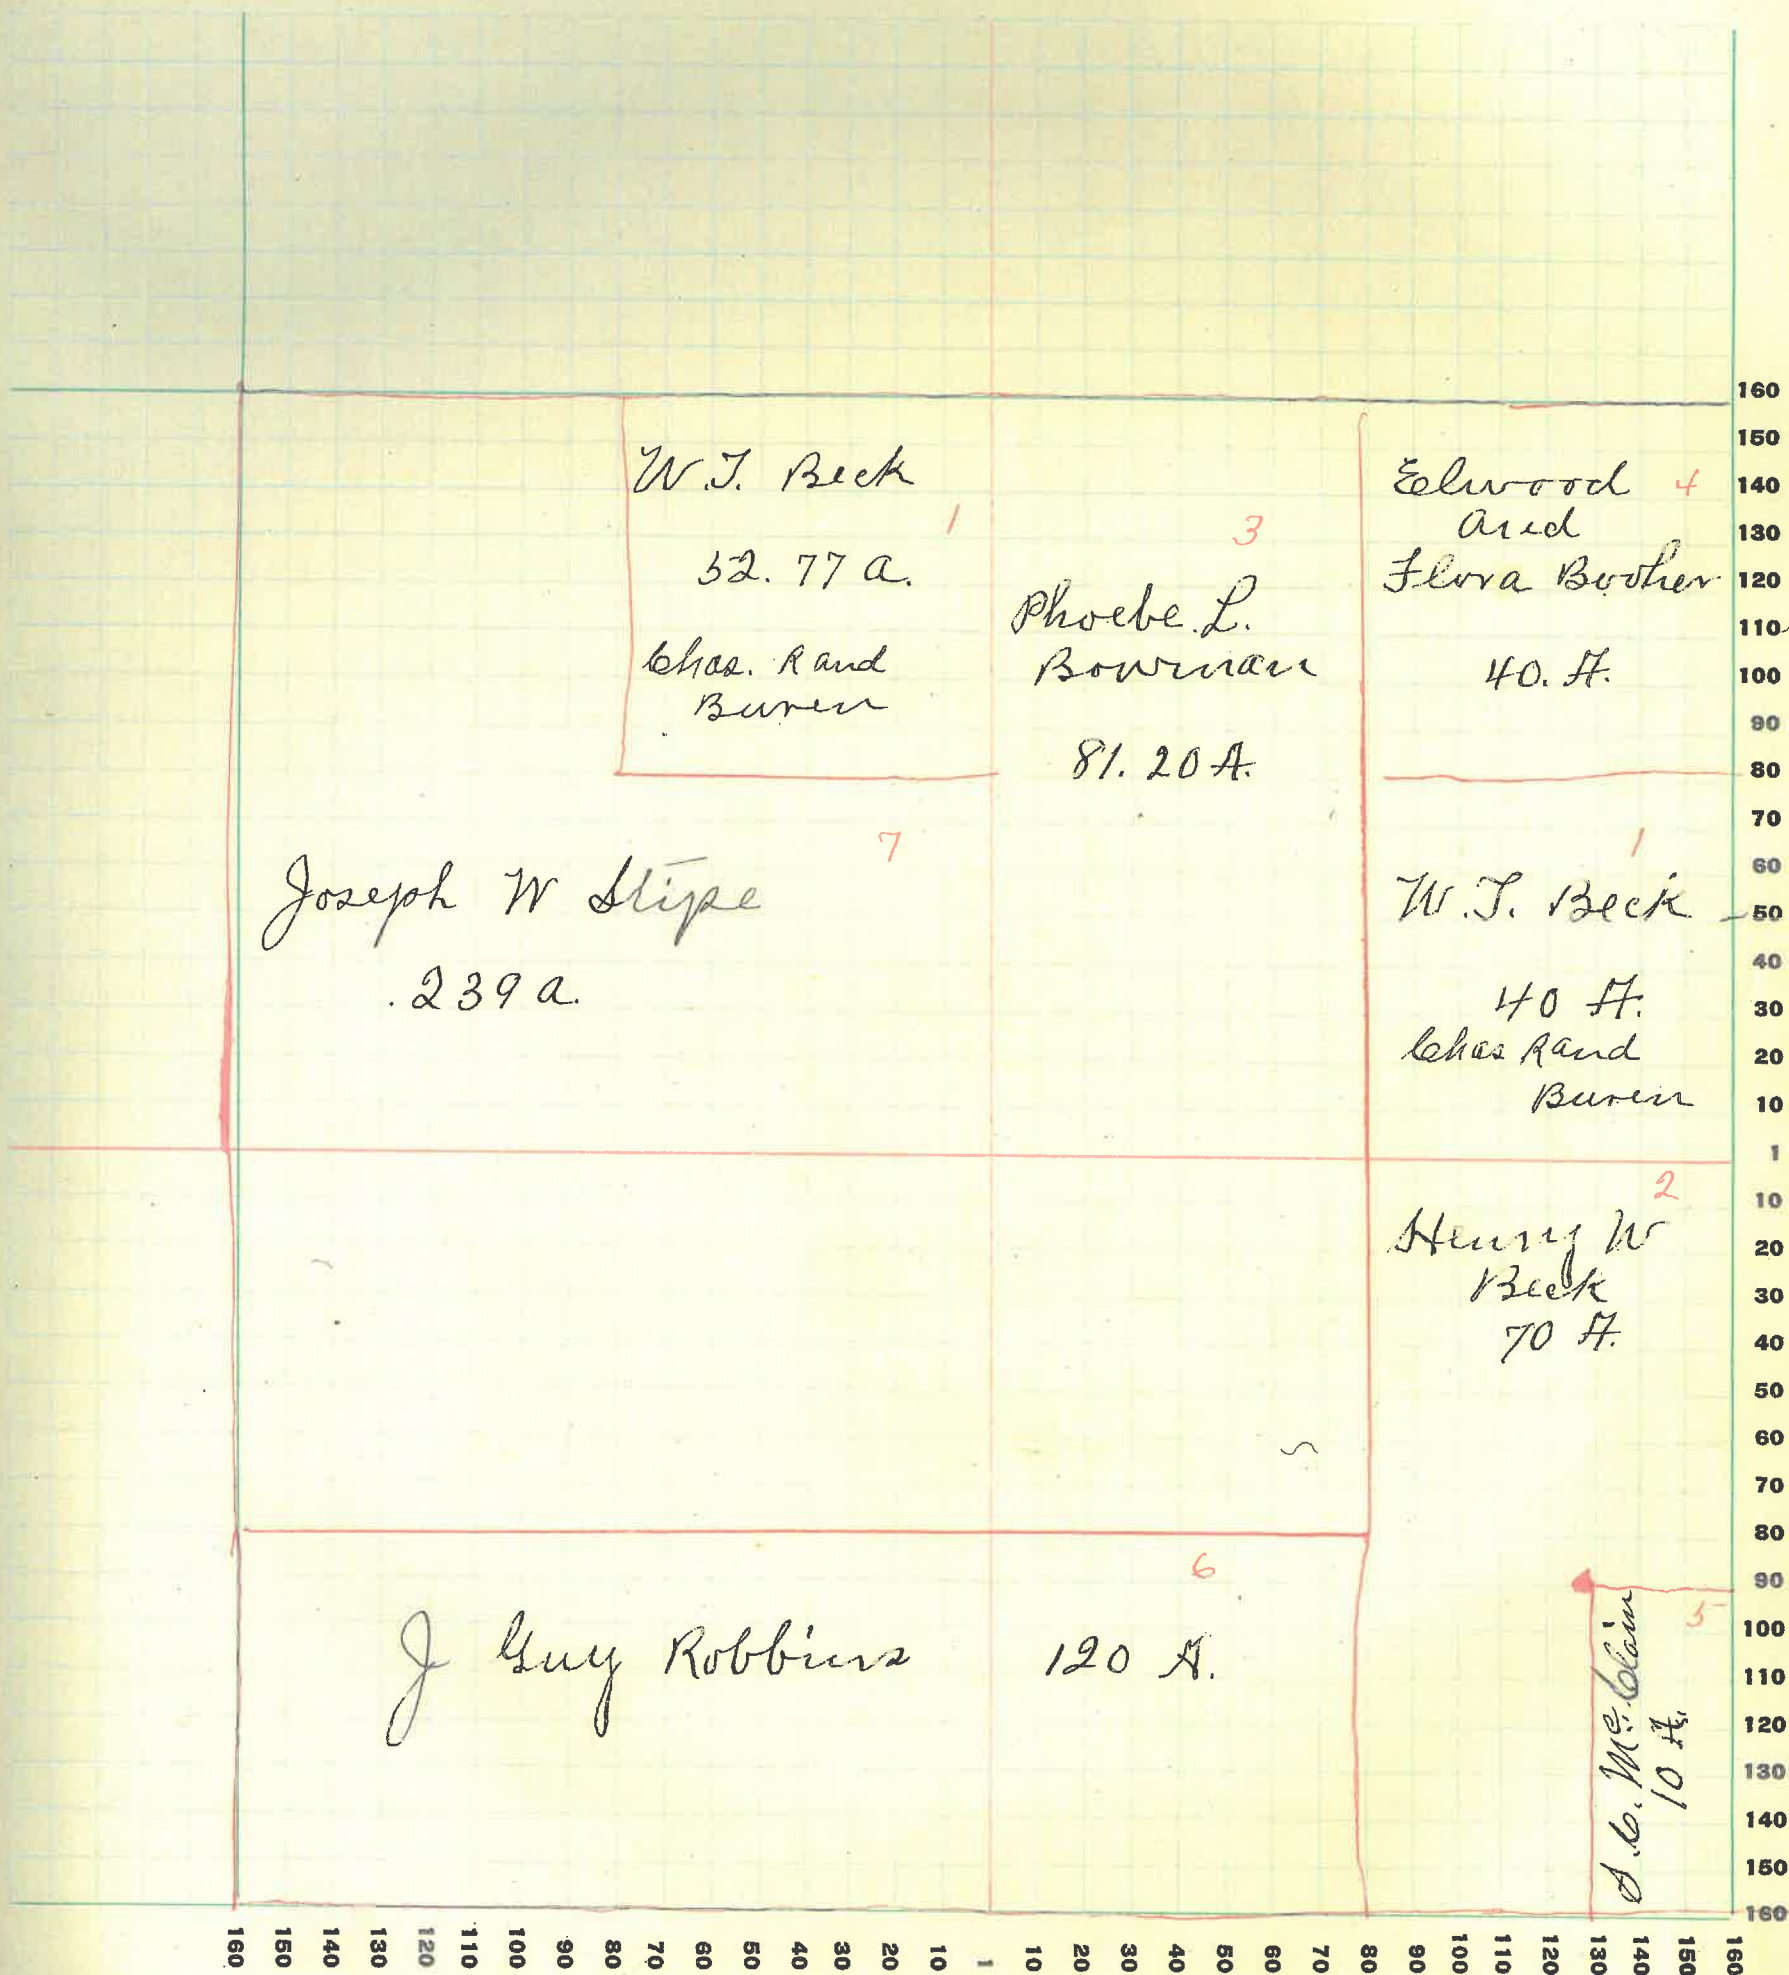 W.T. Beck
1
52.77 a.
Chas. R and
Buren
3
Phoebe L.
Bowman
81.20 A.
Elwood 4
and
Flora Booher
40. A.
7
Joseph W Stipe
239 a.
1
W.T. Beck
40 A.
Chas R and
Buren
2
Henry W
Beck
70 A.
6
J Guy Robbins 120 A.
5
S.C. McClain
10 A.
160
150
140
130
120
110
100
90
80
70
60
50
40
30
20
10
1
10
20
30
40
50
60
70
80
90
100
110
120
130
140
150
160
160 150 140 130 120 110 100 90 80 70 60 50 40 30 20 10 1 10 20 30 40 50 60 70 80 90 100 110 120 130 140 150 160